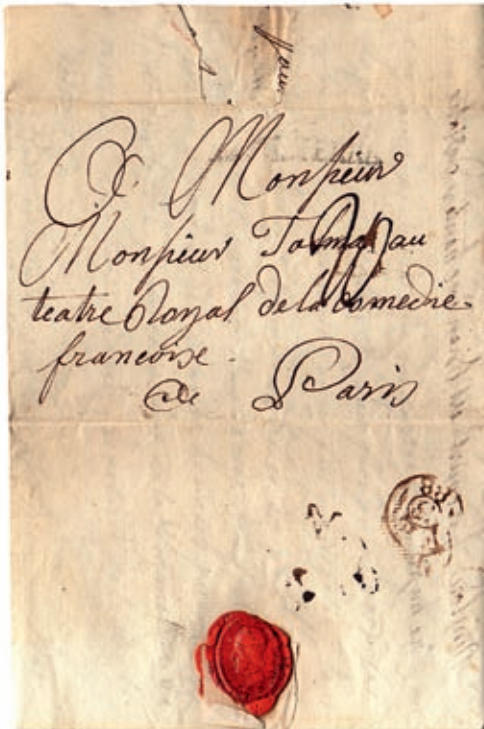 A Monsieur
Monsieur Talma au
teatre Royal de la Comedie
francoise.
De Paris